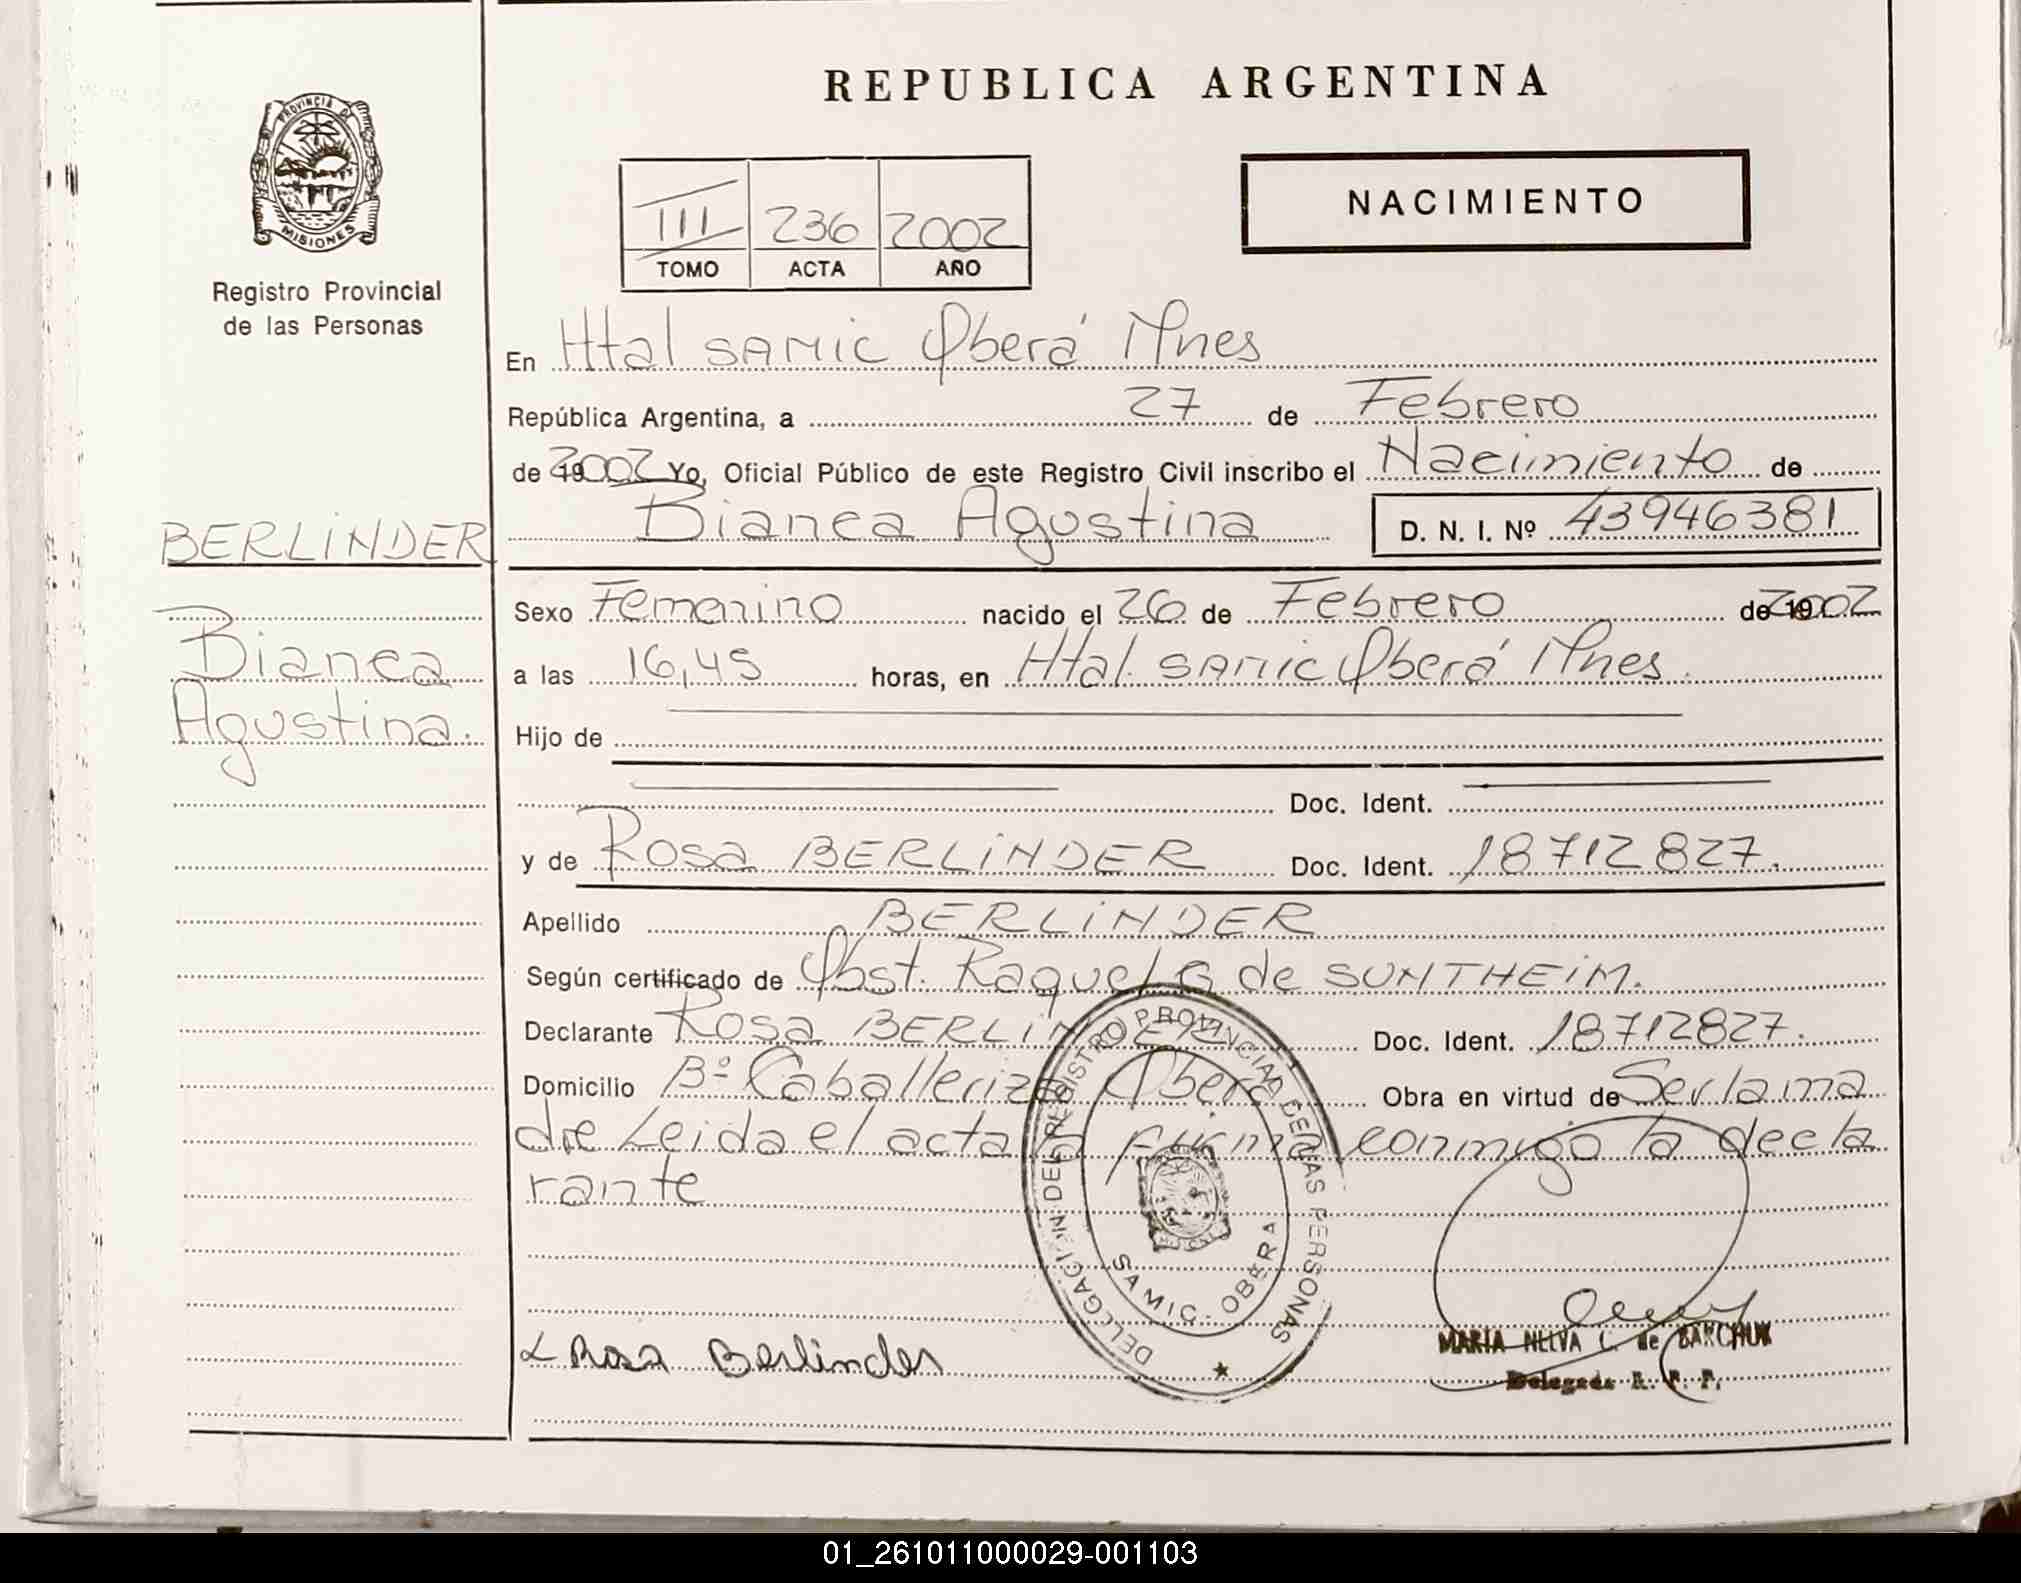 REPUBLICA ARGENTINA
PROVINCIA DE
MISIONES
Registro Provincial
de las Personas
III 236 2002
TOMO ACTA AÑO
NACIMIENTO
En Htal SAMIC Oberá Mnes
República Argentina, a 27 de Febrero
de 2002 Yo, Oficial Público de este Registro Civil inscribo el Nacimiento de
Bianca Agustina D. N. I. Nº 43946381
BERLINDER
Bianca
Agustina.
Sexo Femenino nacido el 26 de Febrero de 2002
a las 16,45 horas, en Htal. SAMIC Oberá Mnes.
Hijo de
Doc. Ident.
y de Rosa BERLINDER Doc. Ident. 18712827.
Apellido BERLINDER
Según certificado de Obst. Raquel G de SUNTHEIM.
Declarante Rosa BERLINDER Doc. Ident. 18712827.
Domicilio Bº Caballeriza Oberá Obra en virtud de Ser la ma
dre Leida el acta la firma conmigo la decla
rante
DELEGACION DEL REGISTRO PROVINCIAL DE LAS PERSONAS
SAMIC - OBERA
Rosa Berlinder
MARIA NELVA C. de BARCHUK
Delegada R. P. P.
01_261011000029-001103